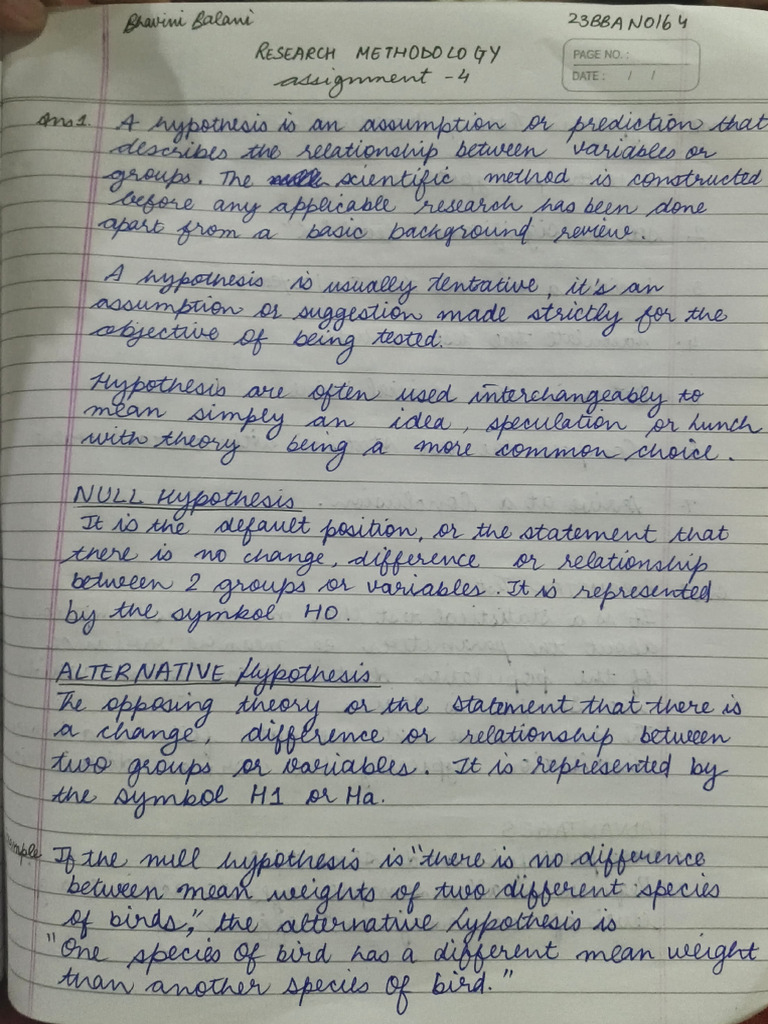 Bhavini Balani
23BBAN0164
RESEARCH METHODOLOGY
assignment -4
PAGE NO. :
DATE : / /
Ans1. A hypothesis is an assumption or prediction that
describes the relationship between variables or
groups. The scientific method is constructed
before any applicable research has been done
apart from a basic background review.
A hypothesis is usually tentative, it's an
assumption or suggestion made strictly for the
objective of being tested.
Hypothesis are often used interchangeably to
mean simply an idea, speculation or hunch
with theory being a more common choice.
NULL Hypothesis
It is the default position, or the statement that
there is no change, difference or relationship
between 2 groups or variables. It is represented
by the symbol H0.
ALTERNATIVE Hypothesis
The opposing theory or the statement that there is
a change, difference or relationship between
two groups or variables. It is represented by
the symbol H1 or Ha.
If the null hypothesis is "there is no difference
between mean weights of two different species
of birds," the alternative hypothesis is
"One species of bird has a different mean weight
than another species of bird."